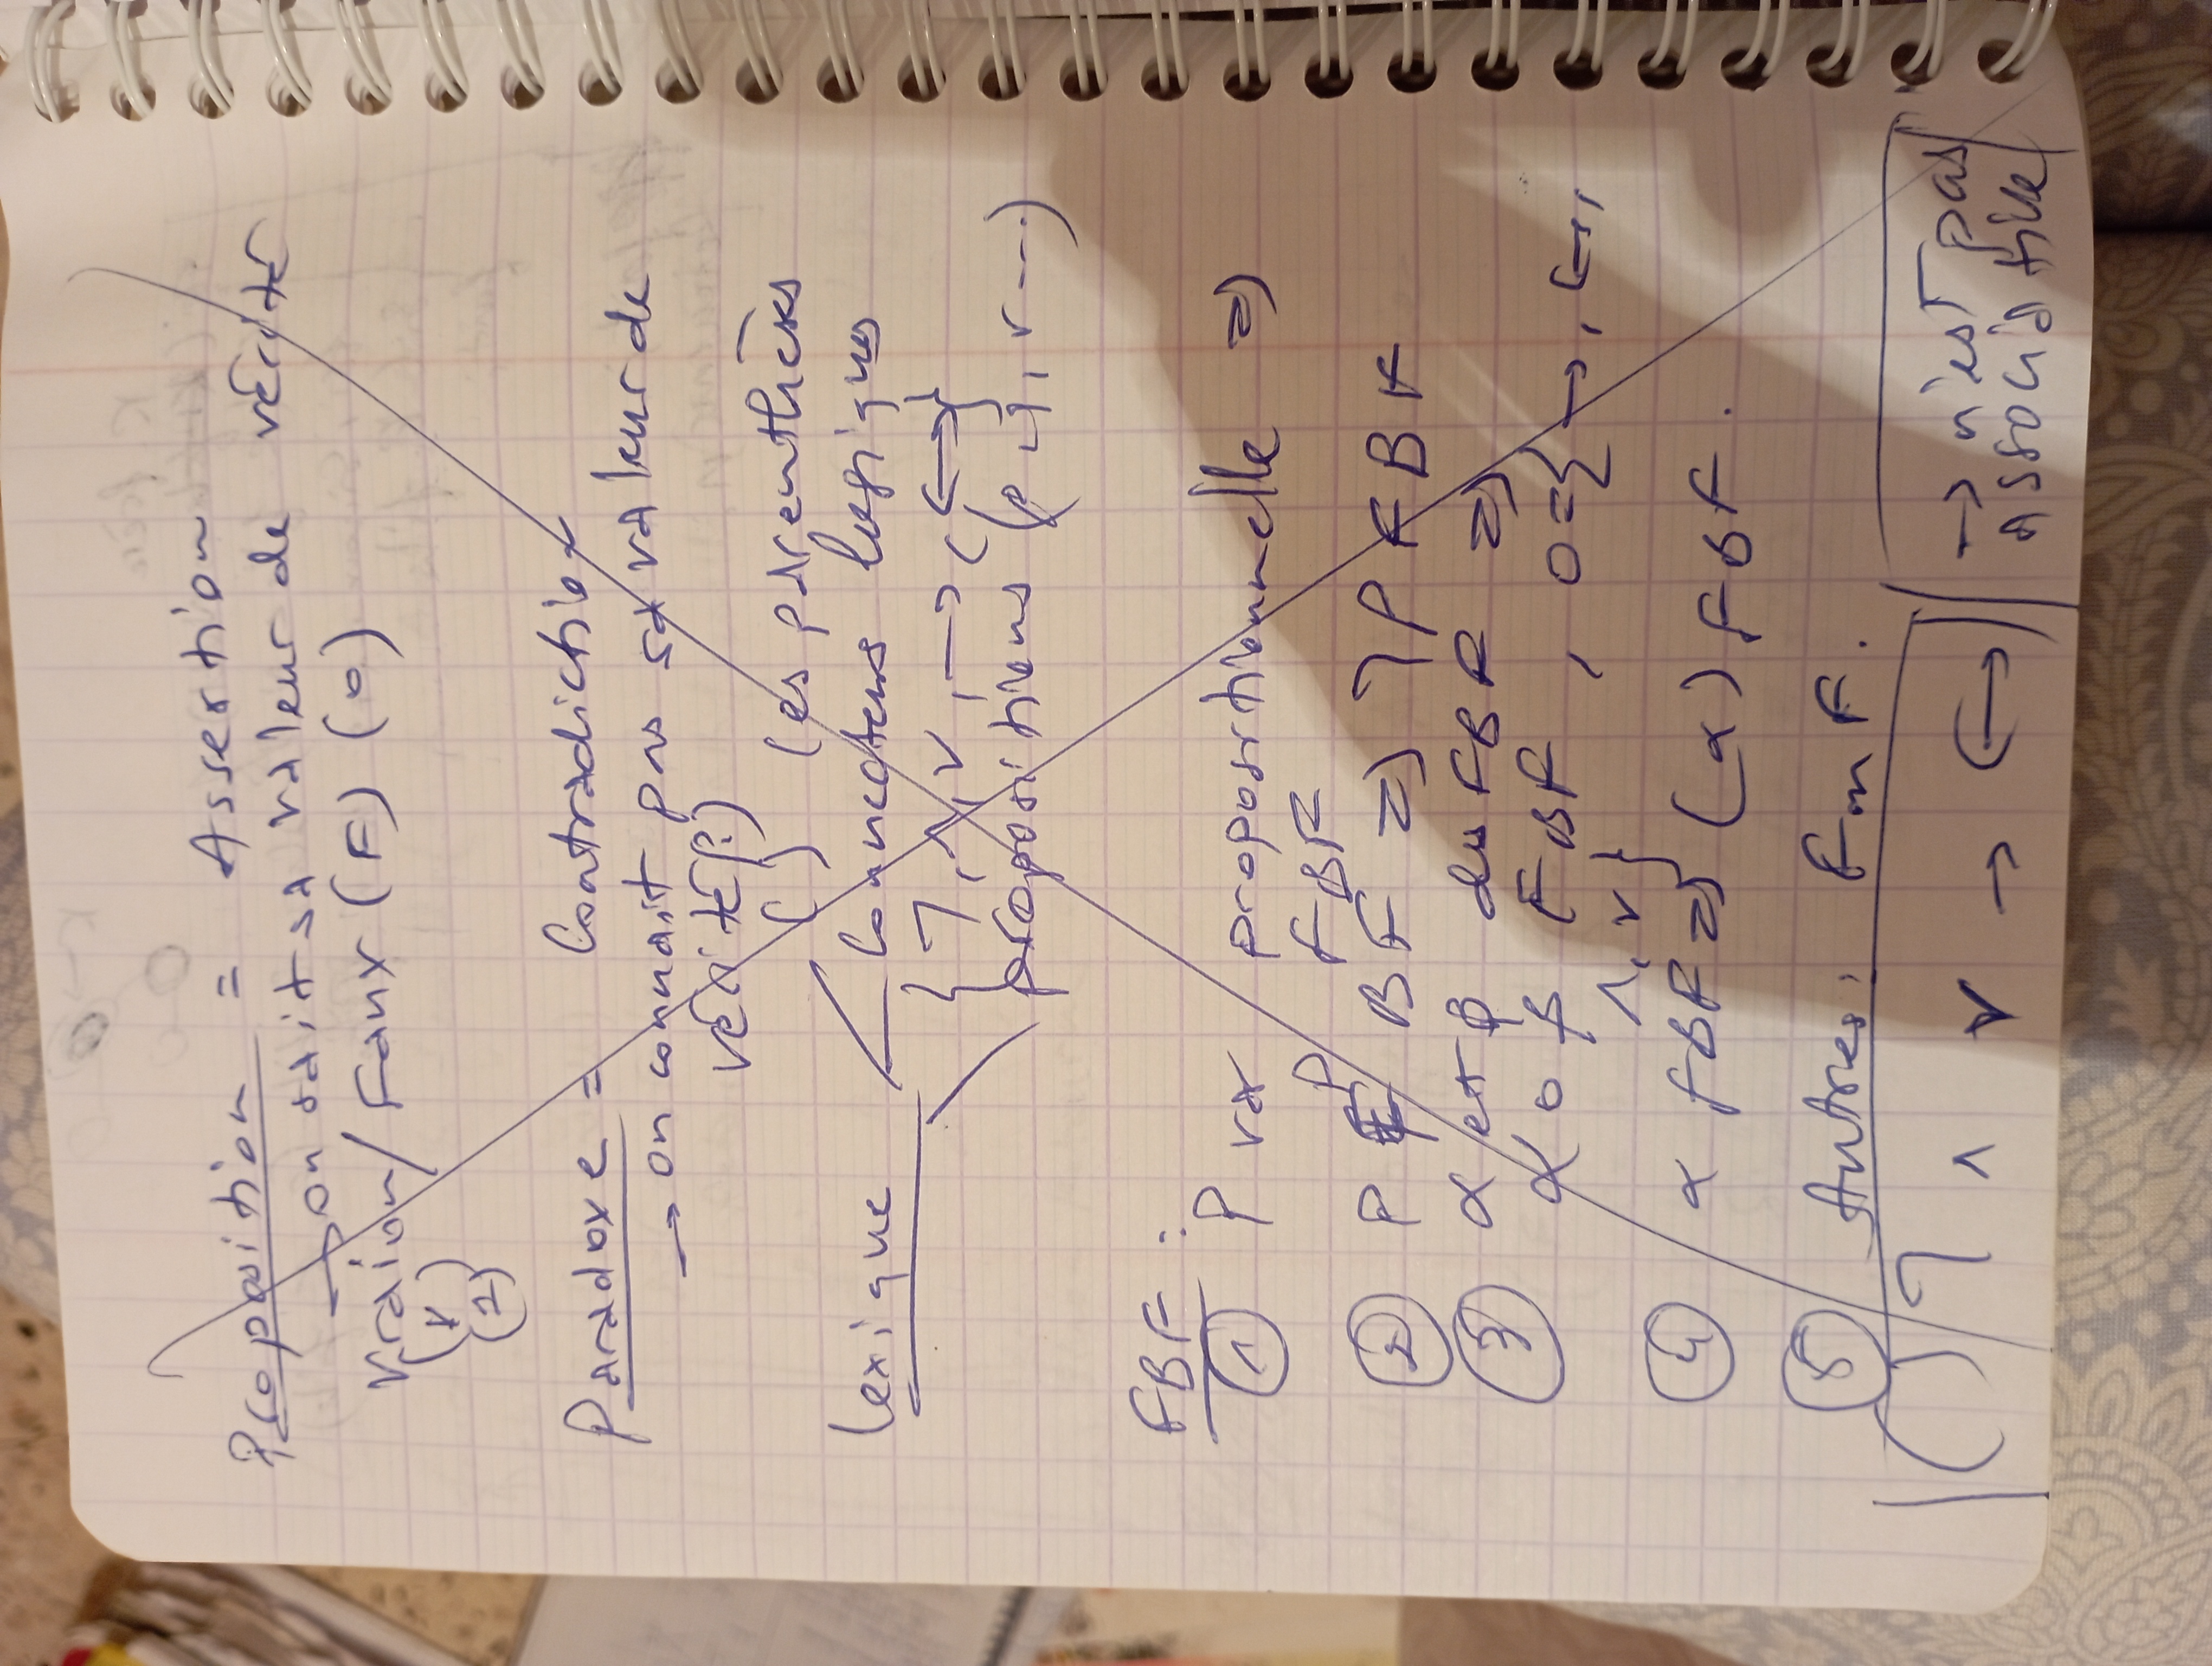 Proposition = Assertion
→ on sait sa valeur de vérité
Vraion / Faux (F) (0)
(V)
(1)
Paradoxe = Contradiction
→ on connait pas sa valeur de
vérité(?)
( ) les parenthèses
Lexique
Connecteurs logiques
{ ¬, ∧, ∨, →, ↔}
propositions (p, q, r ...)
FBF :
① P va propositionnelle =>
P FBF
② P F BF => ¬P FBF
③ α et β des FBF =>
α o β FBF, o={→, ↔,
∧, ∨}
④ α FBF => (α) FBF.
⑤ Autres: FmF.
( ) ¬ ∧ ∨ → ↔
→ n'est pas
associative